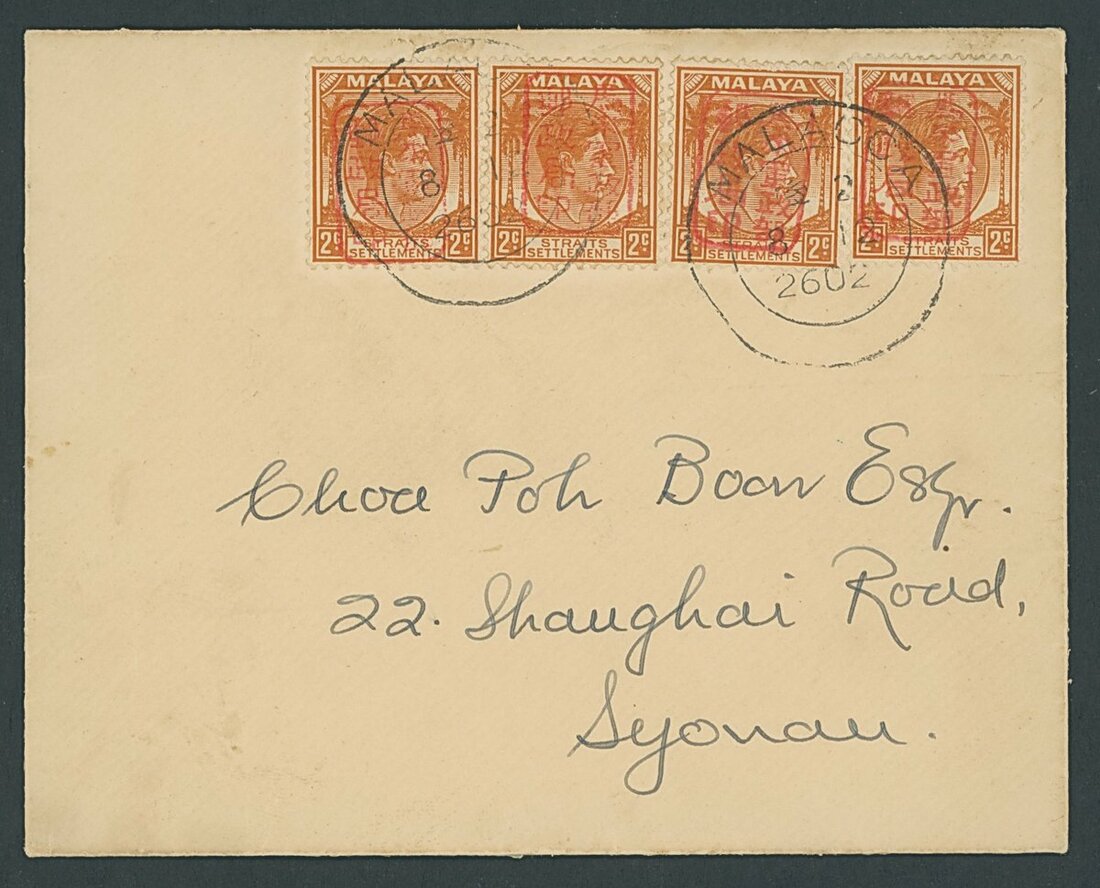 MALAYA MALAYA MALAYA MALAYA
2c STRAITS SETTLEMENTS 2c
2c STRAITS SETTLEMENTS 2c
2c STRAITS SETTLEMENTS 2c
2c STRAITS SETTLEMENTS 2c
MALACCA
8 12
2602
Choa Poh Boon Esqr.
22. Shanghai Road,
Syonan.